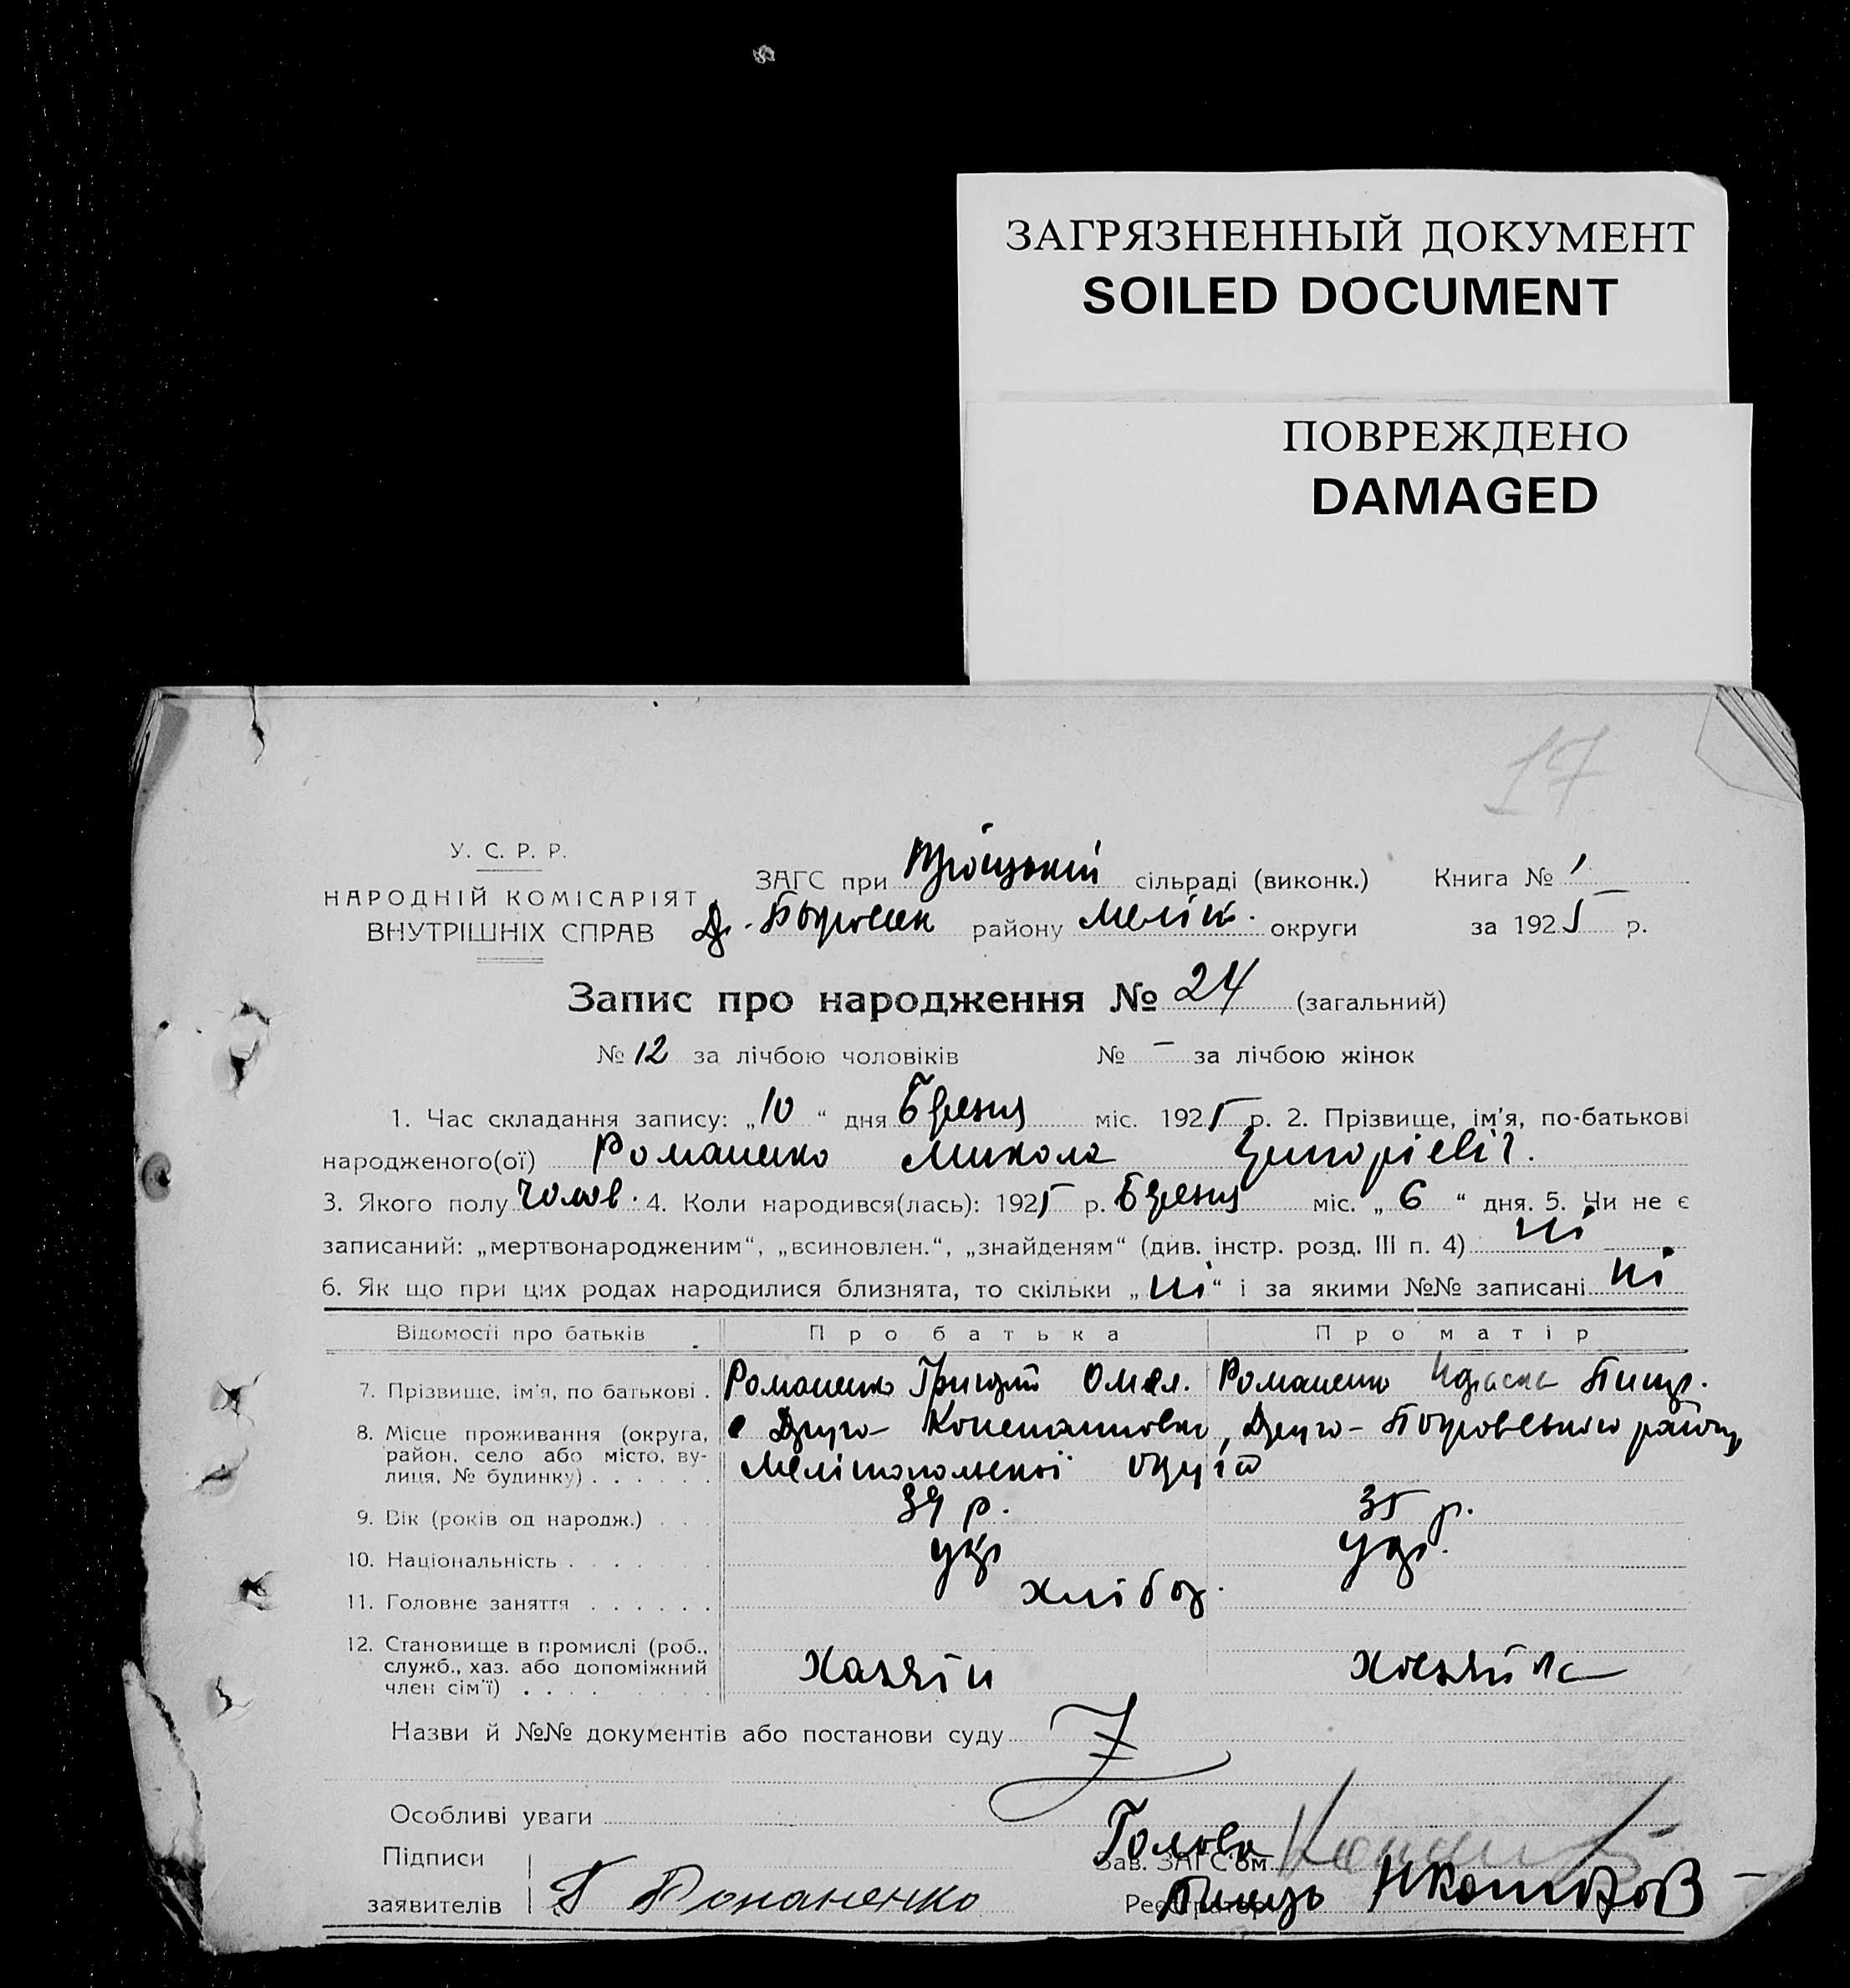 ЗАГРЯЗНЕННЫЙ ДОКУМЕНТ
SOILED DOCUMENT
ПОВРЕЖДЕНО
DAMAGED
17
У. С. Р. Р.
НАРОДНІЙ КОМІСАРІЯТ
ВНУТРІШНІХ СПРАВ
ЗАГС при Троіцькій сільраді (виконк.) Книга № 1
району Меліт. округи за 1925 р.
Запис про народження № 24 (загальний)
№ 12 за лічбою чоловіків № — за лічбою жінок
1. Час складання запису: „10“ дня Березня міс. 1925 р. 2. Прізвище, ім'я, по-батькові
народженого(ої) Романенко Микола Григорієвіч.
3. Якого полу Чолов. 4. Коли народився(лась): 1925 р. Березня міс. „6“ дня. 5. Чи не є
записаний: „мертвонародженим“, „всиновлен.“, „знайденям“ (див. інстр. розд. III п. 4) ні
6. Як що при цих родах народилися близнята, то скільки „ні“ і за якими №№ записані ні
Відомості про батьків Про батька Про матір
7. Прізвище, ім'я, по батькові . Романенко Григорій Омел. Романенко
8. Місце проживання (округа, район, село або місто, вулиця, № будинку) . . . . . .
с Друго- Константиовка, Друго-Покровського району
Мелітопольскої округи
9. Вік (років од народж.) . . . 39 р. 35 р.
10. Національність . . . . укр укр.
11. Головне заняття . . . . . . хлібор.
12. Становище в промислі (роб.,
служб., хаз. або допоміжний
член сім'ї) . . . . Хазяін Хозяйка
Назви й №№ документів або постанови суду
Особливі уваги
Підписи
заявителів Г Романенко
Голова
Зав. ЗАГС'ом
Реєстратор